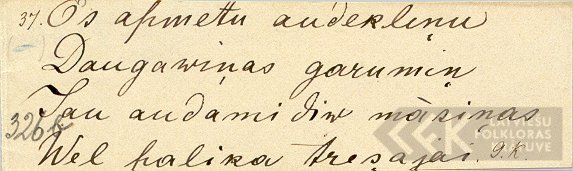 37. Es apmetu audekliņu
Daugawiņas garumiņ
Jau audami diw māsiņas
326
Wel palika trešajai. J.K.
LATVIEŠU
FOLKLORAS
KRĀTUVE